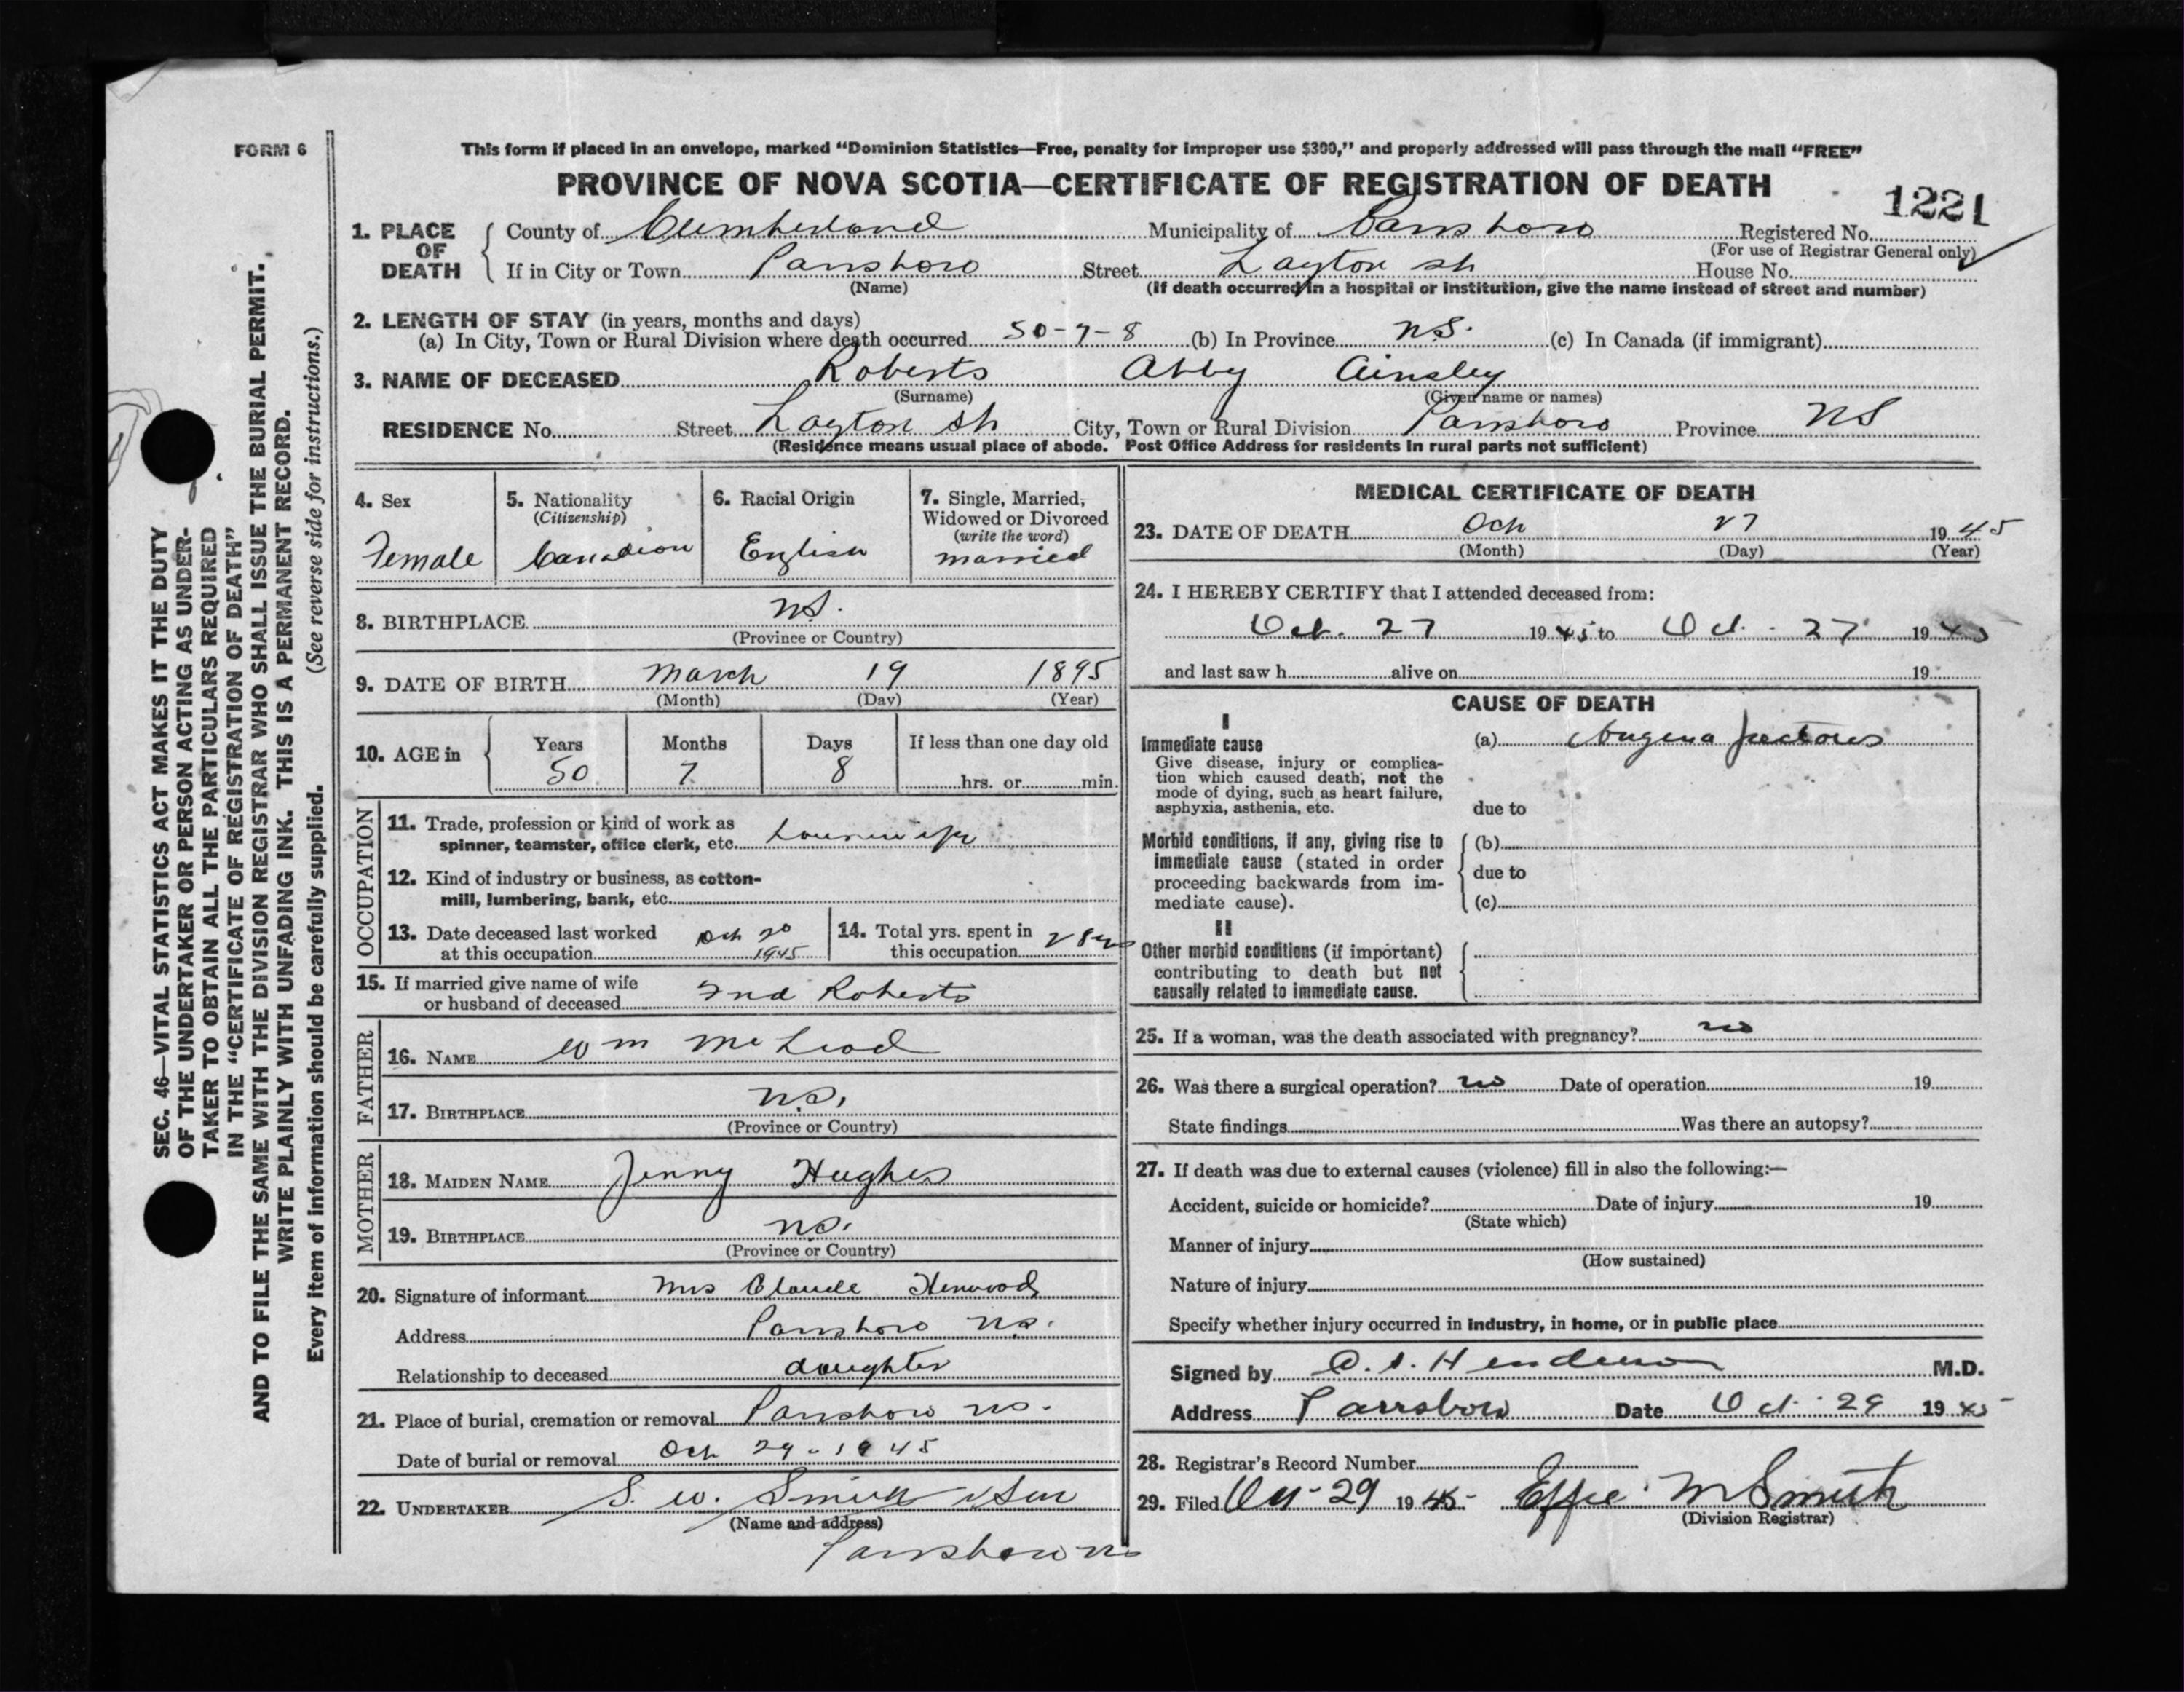 FORM 6
This form if placed in an envelope, marked "Dominion Statistics—Free, penalty for improper use $300," and properly addressed will pass through the mail "FREE"
PROVINCE OF NOVA SCOTIA—CERTIFICATE OF REGISTRATION OF DEATH
1221
1. PLACE OF DEATH
County of Cumberland Municipality of Parrsboro Registered No.
(For use of Registrar General only)
If in City or Town Parrsboro Street Layton St House No.
(Name) (If death occurred in a hospital or institution, give the name instead of street and number)
2. LENGTH OF STAY (in years, months and days)
(a) In City, Town or Rural Division where death occurred 50-7-8 (b) In Province N.S. (c) In Canada (if immigrant)
3. NAME OF DECEASED Roberts Abby Ainsley
(Surname) (Given name or names)
RESIDENCE No. Street Layton St City, Town or Rural Division Parrsboro Province NS
(Residence means usual place of abode. Post Office Address for residents in rural parts not sufficient)
4. Sex
Female
5. Nationality
(Citizenship)
Canadian
6. Racial Origin
English
7. Single, Married,
Widowed or Divorced
(write the word)
married
8. BIRTHPLACE N.S.
(Province or Country)
9. DATE OF BIRTH March 19 1895
(Month) (Day) (Year)
10. AGE in
Years Months Days If less than one day old
50 7 8 hrs. or min.
OCCUPATION
11. Trade, profession or kind of work as
spinner, teamster, office clerk, etc. housewife
12. Kind of industry or business, as cotton-
mill, lumbering, bank, etc.
13. Date deceased last worked Oct 20
at this occupation 1945
14. Total yrs. spent in
this occupation 28 yrs
15. If married give name of wife
or husband of deceased Fred Roberts
FATHER
16. NAME Wm McLeod
17. BIRTHPLACE N.S.
(Province or Country)
MOTHER
18. MAIDEN NAME Jenny Hughes
19. BIRTHPLACE N.S.
(Province or Country)
20. Signature of informant Mrs Claude Henwood
Address Parrsboro N.S.
Relationship to deceased daughter
21. Place of burial, cremation or removal Parrsboro N.S.
Date of burial or removal Oct 29-1945
22. UNDERTAKER S. W. Smith & Son
(Name and address)
Parrsboro NS
MEDICAL CERTIFICATE OF DEATH
23. DATE OF DEATH Oct 27 1945
(Month) (Day) (Year)
24. I HEREBY CERTIFY that I attended deceased from:
Oct. 27 1945 to Oct. 27 1945
and last saw h alive on 19
CAUSE OF DEATH
I
Immediate cause
Give disease, injury or complica-
tion which caused death, not the
mode of dying, such as heart failure,
asphyxia, asthenia, etc.
(a) Angina pectoris
due to
Morbid conditions, if any, giving rise to
immediate cause (stated in order
proceeding backwards from im-
mediate cause).
(b)
due to
(c)
II
Other morbid conditions (if important)
contributing to death but not
causally related to immediate cause.
25. If a woman, was the death associated with pregnancy? no
26. Was there a surgical operation? no Date of operation 19
State findings Was there an autopsy?
27. If death was due to external causes (violence) fill in also the following:—
Accident, suicide or homicide? Date of injury 19
(State which)
Manner of injury
(How sustained)
Nature of injury
Specify whether injury occurred in industry, in home, or in public place
Signed by Henderson M.D.
Address Parrsboro Date Oct. 29 1945
28. Registrar's Record Number
29. Filed Oct-29 1945 Effie M Smith
(Division Registrar)
SEC. 46—VITAL STATISTICS ACT MAKES IT THE DUTY
OF THE UNDERTAKER OR PERSON ACTING AS UNDER-
TAKER TO OBTAIN ALL THE PARTICULARS REQUIRED
IN THE "CERTIFICATE OF REGISTRATION OF DEATH"
AND TO FILE THE SAME WITH THE DIVISION REGISTRAR WHO SHALL ISSUE THE BURIAL PERMIT.
WRITE PLAINLY WITH UNFADING INK. THIS IS A PERMANENT RECORD.
Every item of information should be carefully supplied. (See reverse side for instructions.)